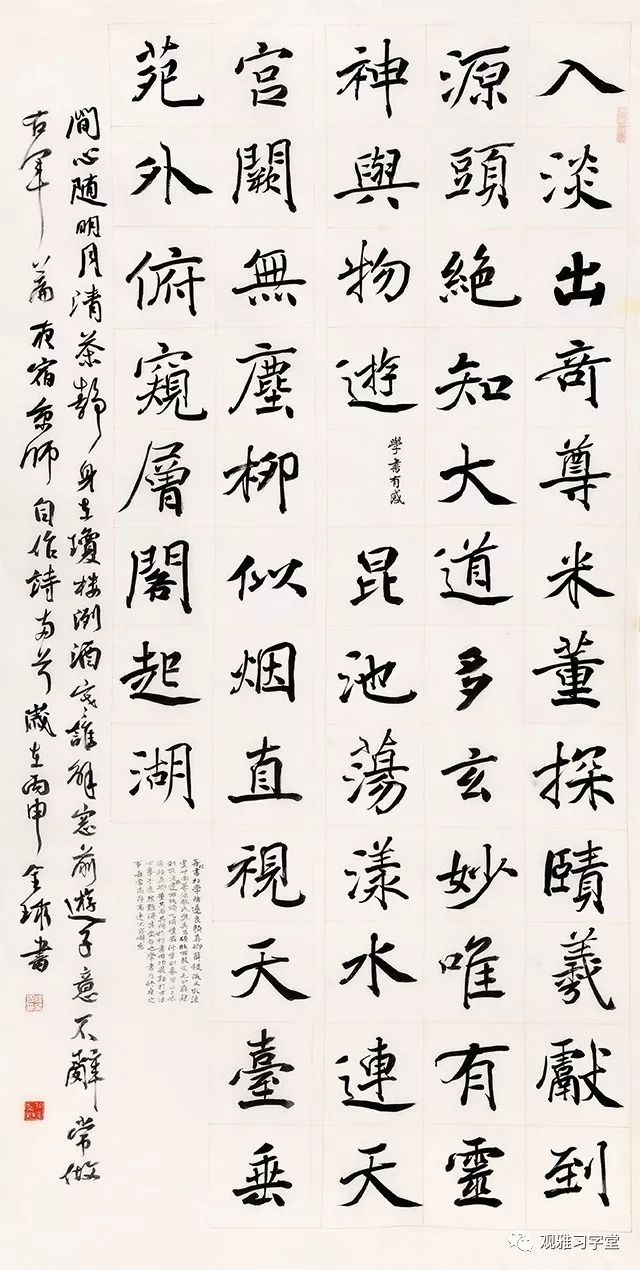 入淡出竒尊米董探賾羲獻到
源頭絕知大道多玄妙唯有靈
神與物遊
學書有感
昆池蕩漾水連天
宮闕無塵柳似烟直視天臺垂
苑外俯窺層閣起湖
心随明月清茶靜身在瓊楼洌酒寒誰解窓前遊子意不辭常做
右軍篇夜宿京師自作詩两首歲在丙申書
观雅习字堂